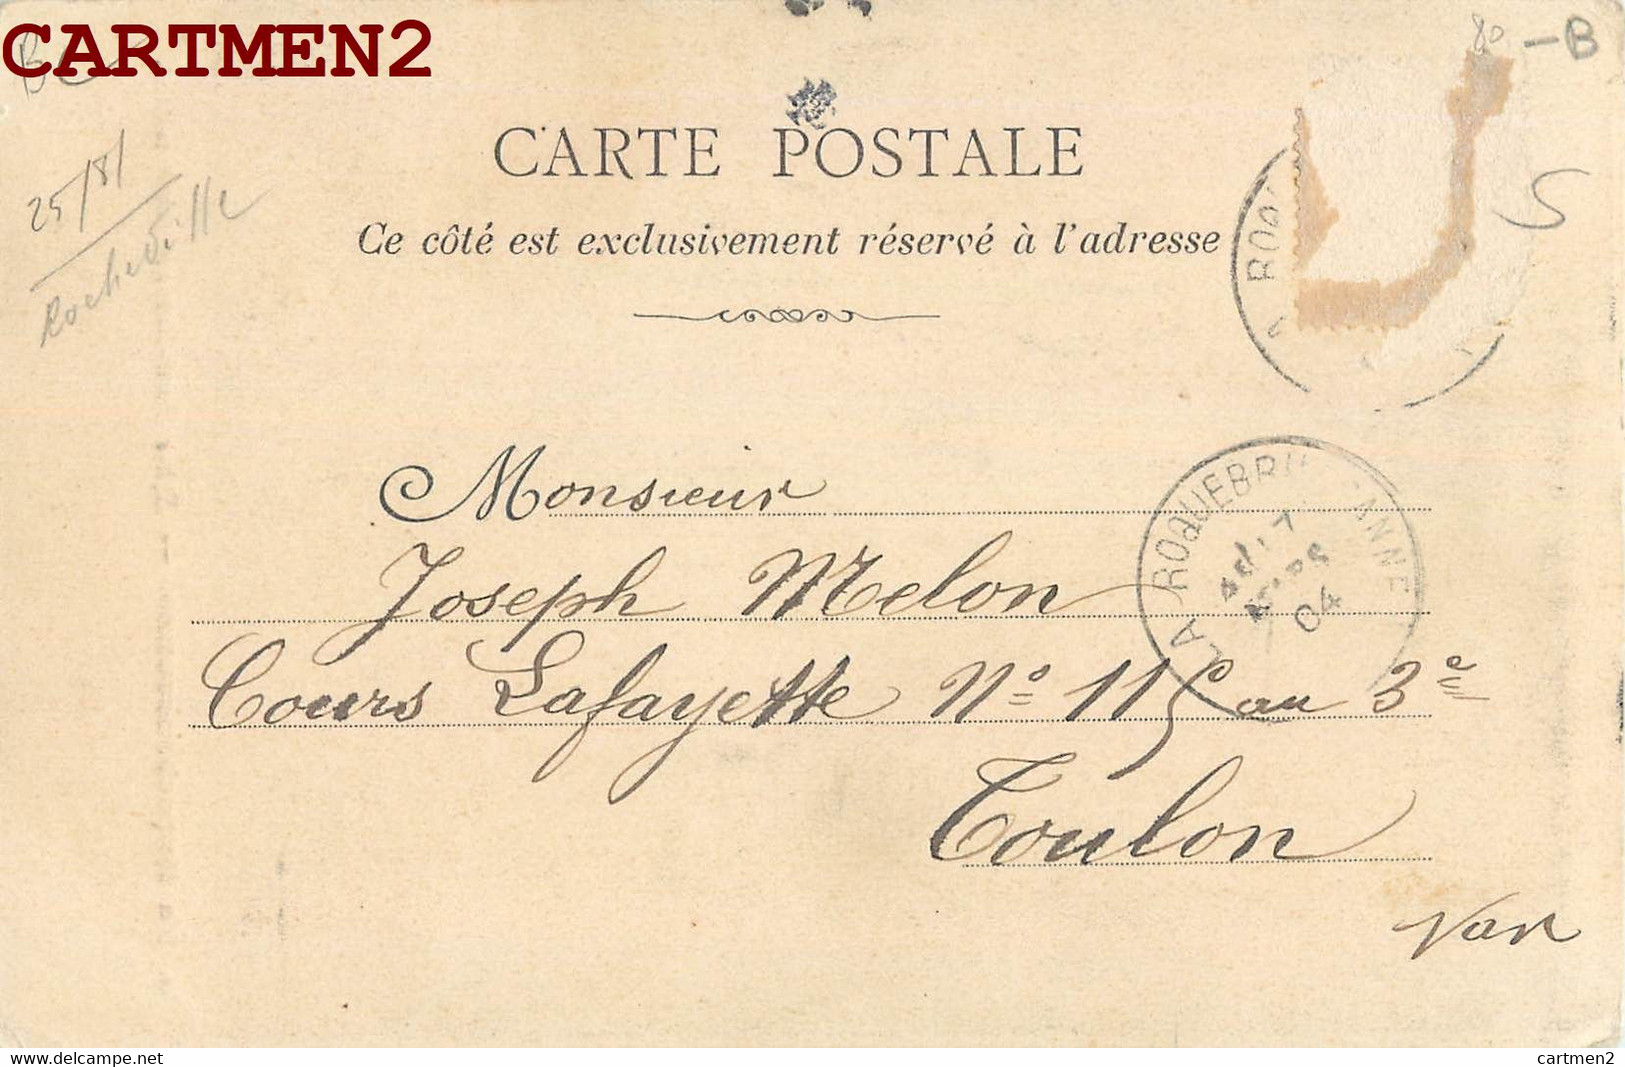 CARTMEN2
80 -B
25/8/
Rocheville
S
CARTE POSTALE
Ce côté est exclusivement réservé à l'adresse
Monsieur
Joseph Melon
Cours Lafayette Nº 115 au 3e
Toulon
Var
LA ROQUEBRU
ANNE
04
delcampe.net
cartmen2